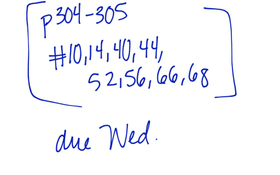 p304-305
#10,14,40,44,
52,56,66,68
due Wed.